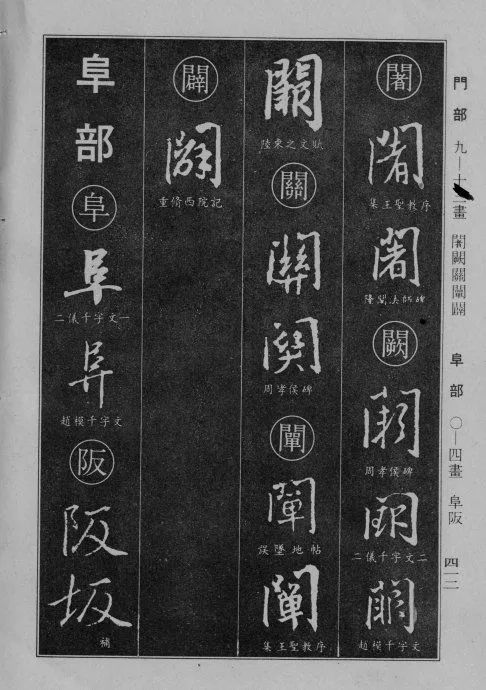 門部 九—十二畫 闍闕關闡闢 阜部 〇—四畫 阜阪 四一一
闍
闍
集王聖教序
闍
隆闡法師碑
闕
闕
周孝侯碑
闕
二儀千字文二
闕
趙模千字文
闕
陸柬之文賦
關
關
關
周孝侯碑
闡
闡
俟墜地帖
闡
集王聖教序
闢
闢
重脩西院記
阜部
阜
阜
二儀千字文一
阜
趙模千字文
阪
阪
坂
補